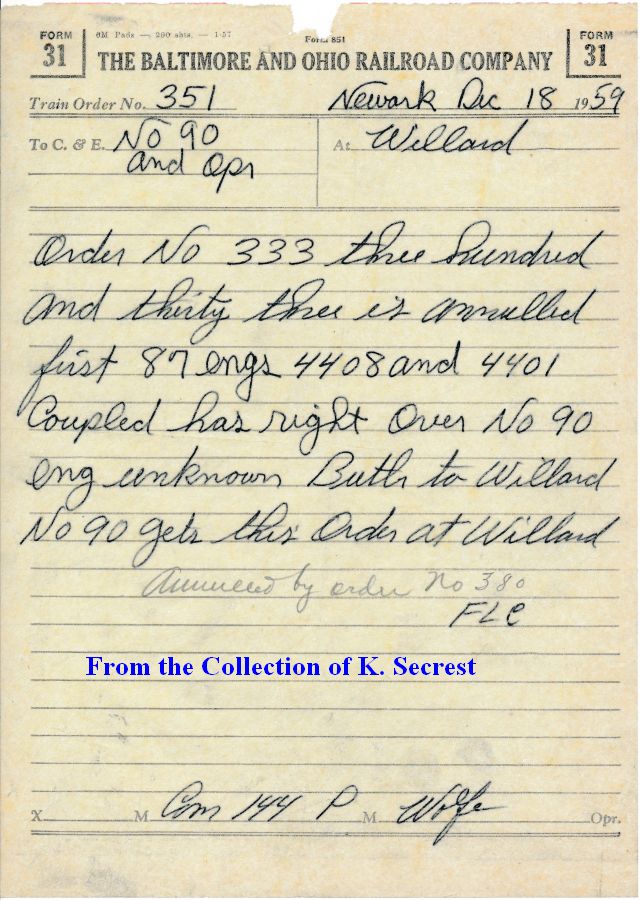 FORM 31
6M Pads — 200 shts. — 1-57
Form 851
FORM 31
THE BALTIMORE AND OHIO RAILROAD COMPANY
Train Order No. 351 Newark Dec 18 1959
To C. & E. No 90 At Willard
and Opr
Order No 333 three hundred
and thirty three is annulled
first 87 engs 4408 and 4401
Coupled has right Over No 90
eng unknown Butler to Willard
No 90 gets this Order at Willard
Annulled by order No 380
FLC
From the Collection of K. Secrest
X M Com 144 P M Wolfe Opr.